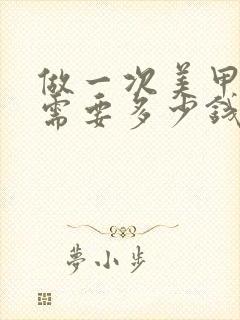 做一次美甲
需要多少钱
夢小步